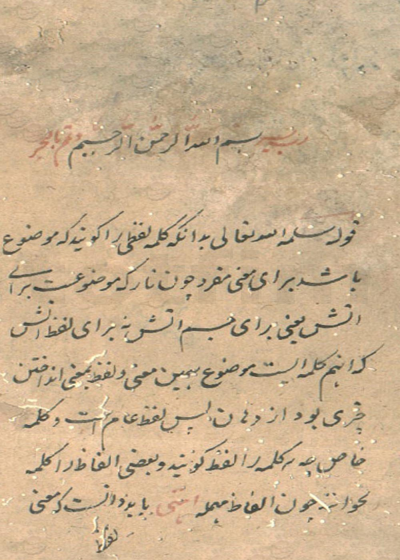 رب یسر بسم الله الرحمن الرحیم و تمم بالخیر
قوله سلمه الله تعالی بدانکه کلمه لفظی را کویند که موضوع
باشد برای معنی مفرد چون نار که موضوعست برای
اتش یعنی برای جسم اتش نه برای لفظ اتش
که انهم کلمه ایست موضوع بهمین معنی و لفظ بمعنی انداختن
چیزی بود از دهان پس لفظ عام است و کلمه
خاص چه کلمه را لفظ کویند و بعضی الفاظ را کلمه
نخوانند چون الفاظ مهمله انتهی باید دانست که معنی
لفظ